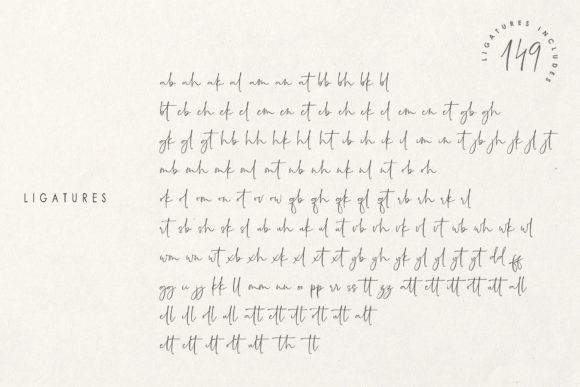 LIGATURES INCLUDES
149
ab ah ak al am an at bb bh bk bl
bt cb ch ck cl cm cn ct eb eh ek el em en et gb gh
gk gl gt hb hh hk hl ht ib ih ik il im in it jb jh jk jl jt
mb mh mk ml mt nb nh nk nl nt ob oh
LIGATURES
ok ol om on ot ov ow qb qh qk ql qt rb rh rk rl
rt sb sh sk sl ub uh uk ul ut vb vh vk vl vt wb wh wk wl
wm wn wt xb xh xk xl xt xt yb yh yk yl yl yt yt dd ff
gg ii jj kk ll mm nn oo pp rr ss tt zz att ett itt ott utt all
ell ill oll ull att ett itt ott utt alt
elt elt ilt olt ult th tt